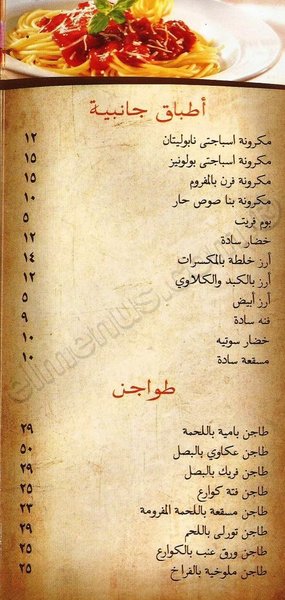 أطباق جانبية
مكرونة اسباجتى نابوليتان ١٢
مكرونة اسباجتى بولونيز ١٥
مكرونة فرن بالمفروم ١٥
مكرونة بنا صوص حار ١٠
بوم فريت ٥
خضار سادة ١٢
أرز خلطة بالمكسرات ١٤
أرز بالكبد والكلاوي ١٢
أرز أبيض ٥
فته سادة ٩
خضار سوتيه ١٠
مسقعة سادة ١٠
طواجن
طاجن بامية باللحمة ٢٩
طاجن عكاوي بالبصل ٥٠
طاجن فريك بالبصل ٢٩
طاجن فتة كوارع ٢٥
طاجن مسقعة باللحمة المفرومة ٢٣
طاجن تورلى باللحم ٢٩
طاجن ورق عنب بالكوارع ٢٥
طاجن ملوخية بالفراخ ٢٥